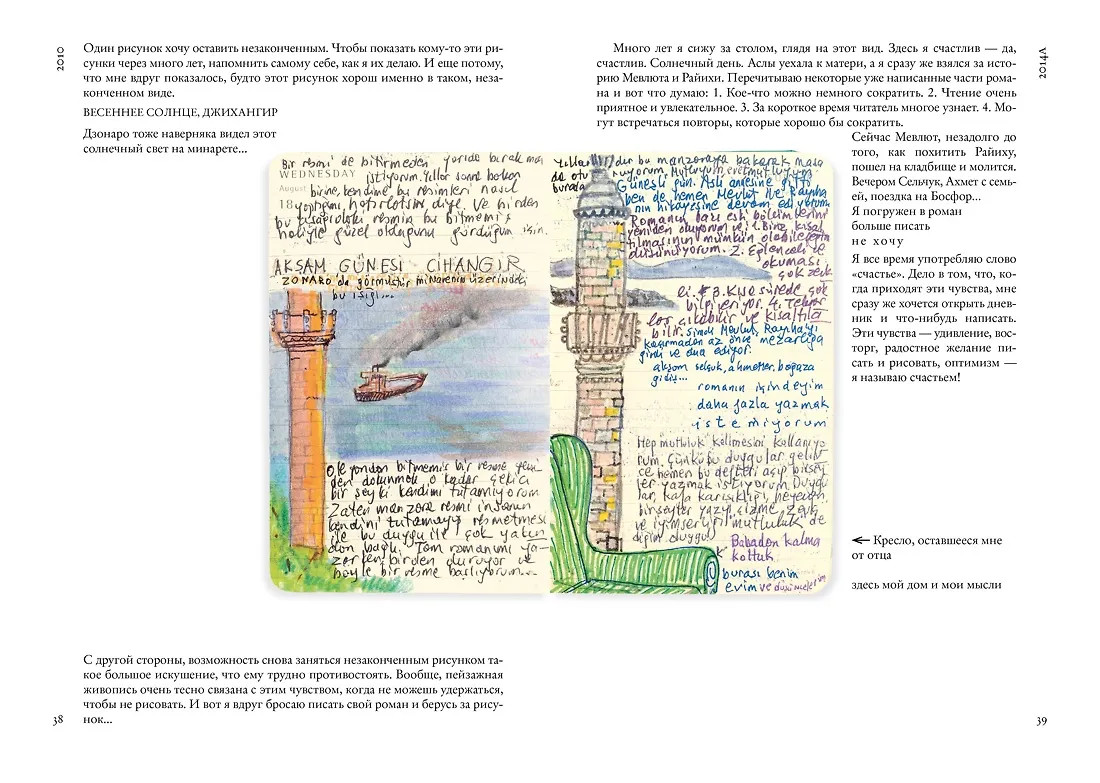 2010
Один рисунок хочу оставить незаконченным. Чтобы показать кому-то эти ри-
сунки через много лет, напомнить самому себе, как я их делаю. И еще потому,
что мне вдруг показалось, будто этот рисунок хорош именно в таком, неза-
конченном виде.
ВЕСЕННЕЕ СОЛНЦЕ, ДЖИХАНГИР
Дзонаро тоже наверняка видел этот
солнечный свет на минарете...
Bir resmi de bitirmeden yarıda bırakmak
WEDNESDAY istiyorum. Yıllar sonra bakan
August birine, kendime bu resimleri nasıl
18 yaptığımı hatırlatsın diye. Ve birden
bu resmin bu bitmemiş
haliyle güzel olduğunu gördüğüm için.
AKŞAM GÜNEŞİ CİHANGİR
ZONARO da görmüştür minarenin üzerindeki
bu ışığı...
Öte yandan bitmemiş bir resme yeni-
den dokunmak o kadar çekici
bir şey ki kendimi tutamıyorum
Zaten manzara resmi insanın
kendini tutamayıp resmetmesi
ile bu duygu ile çok yakın-
dan bağlı. Tam romanımı ya-
zarken birden duruyor ve
böyle bir resme başlıyorum...
С другой стороны, возможность снова заняться незаконченным рисунком та-
кое большое искушение, что ему трудно противостоять. Вообще, пейзажная
живопись очень тесно связана с этим чувством, когда не можешь удержаться,
чтобы не рисовать. И вот я вдруг бросаю писать свой роман и берусь за рису-
нок...
38
2014А
Много лет я сижу за столом, глядя на этот вид. Здесь я счастлив — да,
счастлив. Солнечный день. Аслы уехала к матери, а я сразу же взялся за исто-
рию Мевлюта и Райихи. Перечитываю некоторые уже написанные части рома-
на и вот что думаю: 1. Кое-что можно немного сократить. 2. Чтение очень
приятное и увлекательное. 3. За короткое время читатель многое узнает. 4. Мо-
гут встречаться повторы, которые хорошо бы сократить.
Yıllardır bu manzaraya bakarak masa
da oturuyorum. Mutluyum, evet mutluyum
burada
Güneşli gün. Aslı annesine gitti
ben de hemen Mevlut ile Rayiha
nın hikayesine devam ediyorum.
Romanın bazı eski bölümlerini
yeniden okuyorum ve 1. Biraz kısal
tılmasının mümkün olabileceğini
düşünüyorum. 2. Eğlenceli ve
okuması
çok zevk
li. 3. Kısa sürede çok
bilgi veriyor. 4. Tekrar
lar çıkabilir ve kısaltıla
bilir. Şimdi Mevlut, Rayihayı
kaçırmadan az önce mezarlığa
girdi ve dua ediyor.
akşam selçuk, ahmetler, boğaza
gidiş...
romanın içindeyim
daha fazla yazmak
istemiyorum
Hep "mutluluk" kelimesini kullanıyo
rum. Çünkü bu duygular gelin
ce hemen bu defteri açıp birşey
ler yazmak istiyorum. Duygu
lar, kafa karışıklığı, heyecan,
birşeyler yazıp, çizme zevki
ve iyimserliği mutluluk de
diğim duygu
Babadan kalma
koltuk
burası benim
evim ve düşüncelerim
Сейчас Мевлют, незадолго до
того, как похитить Райиху,
пошел на кладбище и молится.
Вечером Сельчук, Ахмет с семь-
ей, поездка на Босфор...
Я погружен в роман
больше писать
не хочу
Я все время употребляю слово
«счастье». Дело в том, что, ко-
гда приходят эти чувства, мне
сразу же хочется открыть днев-
ник и что-нибудь написать.
Эти чувства — удивление, вос-
торг, радостное желание пи-
сать и рисовать, оптимизм —
я называю счастьем!
Кресло, оставшееся мне
от отца
здесь мой дом и мои мысли
39